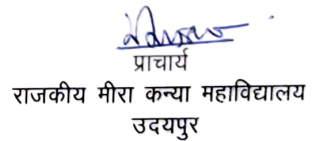 प्राचार्य
राजकीय मीरा कन्या महाविद्यालय
उदयपुर